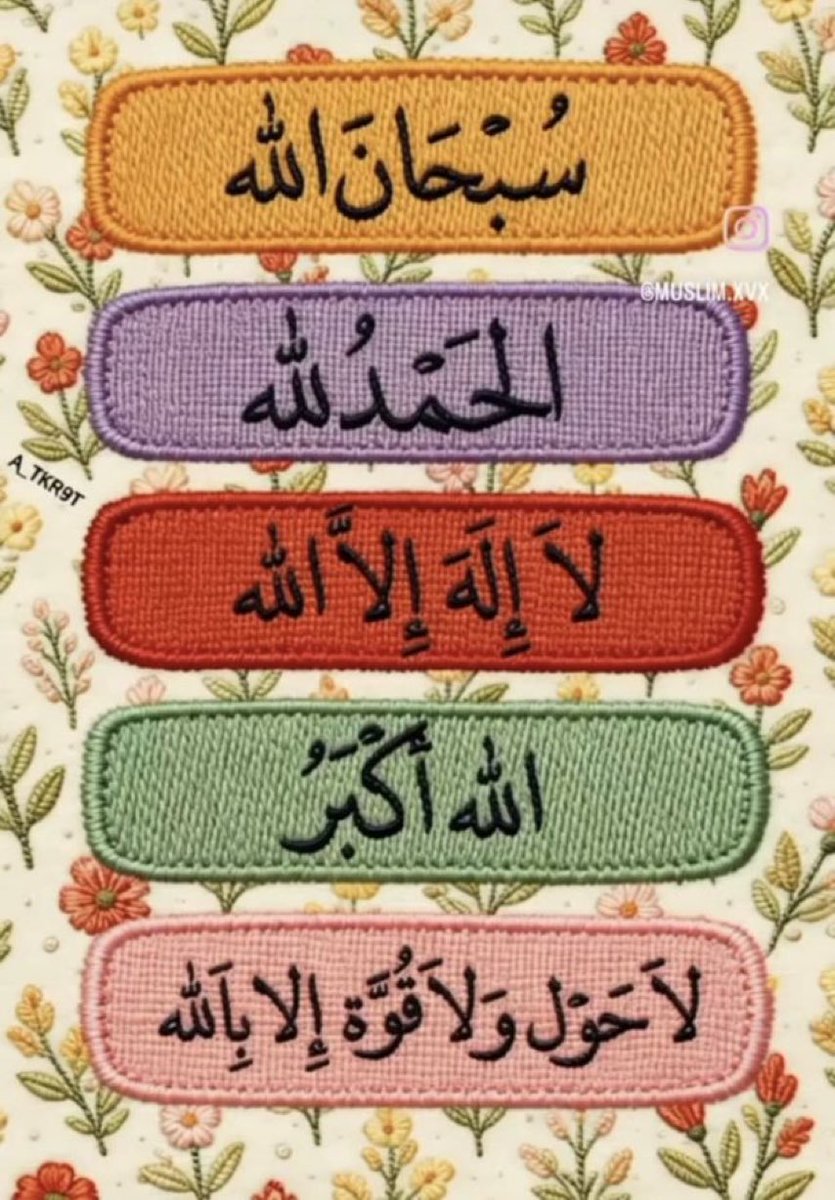 سُبْحَانَ الله
@MUSLIM.XVX
الحَمْدُ لله
A_TKR9T
لاَ إِلَهَ إِلاَّ الله
الله أَكْبَرُ
لاَ حَوْل وَلاَ قُوَّة إِلا بِاَلله